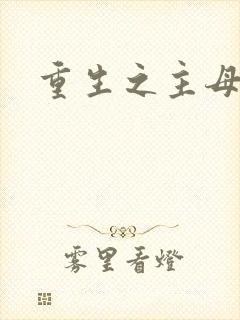 重生之主母
雾里看燈